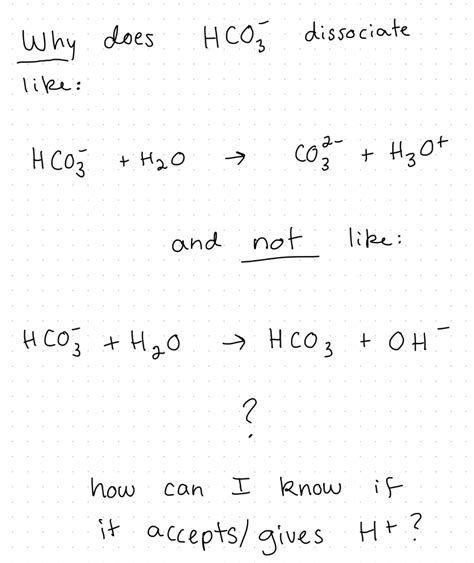 Why does HCO₃⁻ dissociate
like:
HCO₃⁻ + H₂O → CO₃²⁻ + H₃O⁺
and not like:
HCO₃⁻ + H₂O → HCO₃ + OH⁻
?
how can I know if
it accepts/gives H⁺?